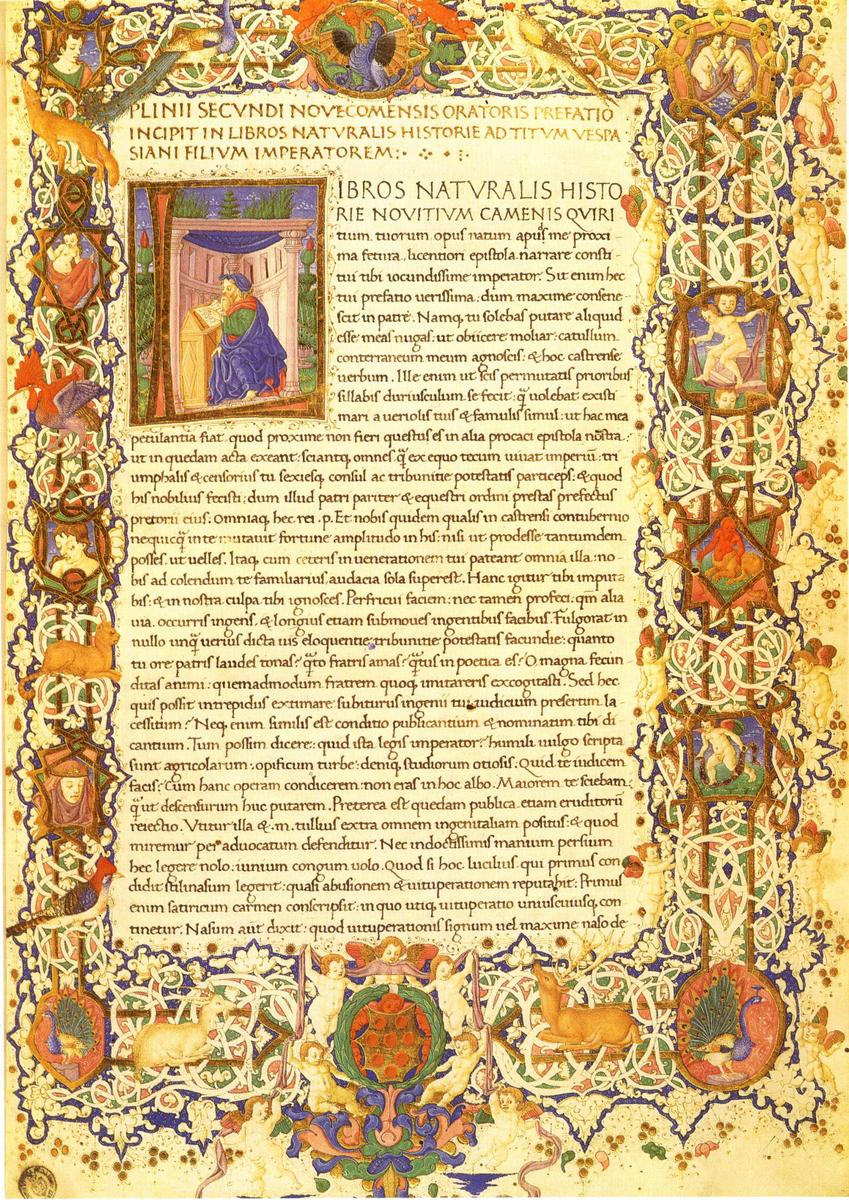 PLINII SECVNDI NOVECOMENSIS ORATORIS PREFATIO
INCIPIT IN LIBROS NATVRALIS HISTORIE AD TITVM VESPA
SIANI FILIVM IMPERATOREM:·
LIBROS NATVRALIS HISTO
RIE NOVITIVM CAMENIS QVIRI
tium tuorum opus natum apud me proxi
ma fetura, licentiori epistola narrare consti
tui tibi iocundissime imperator. Sit enim hec
tui prefatio uerissima: dum maxime consene
scit in patrē. Namq, tu solebas putare aliquid
esse meas nugas: ut obiicere moliar: catullum
conterraneum meum agnoscis: & hoc castrense
uerbum. Ille enim ut scis permutatis prioribus
sillabis duriusculum se fecit: q̄ uolebat existi
mari a ueriolis tuis & famulis simul: ut hac mea
petulantia fiat. quod proxime non fieri questus es in alia procaci epistola nostra:
ut in quedam acta exeant: sciantq, omnes q̄ ex equo tecum uiuat imperiū: tri
umphalis & censorius tu sexiesq, consul ac tribunitie potestatis particeps: & quod
his nobilius fecisti: dum illud patri pariter & equestri ordini prestas prefectus
pretorii eius: omniaq, hec rei .p. Et nobis quidem qualis in castrensi contubernio
nequicq̄ in te mutauit fortune amplitudo in his: nisi ut prodesse tantumdem
posses, ut uelles. Itaq, cum ceteris in uenerationem tui pateant omnia illa: no-
bis ad colendum te familiarius audacia sola superest. Hanc igitur tibi imputa
bis: & in nostra culpa tibi ignosces. Perfricui faciem: nec tamen profeci: qm̄ alia
uia. occurris ingens. & longius etiam submoues ingentibus facibus. Fulgorat in
nullo unq̄ uerius dicta uis eloquentie: tribunitie potestatis facundie: quanto
tu ore patris laudes tonas? q̄to fratris amas? q̄tus in poetica es? O magna fecun
ditas animi: quemadmodum fratrem quoq, imitareris excogitasti. Sed hec
quis possit intrepidus extimare subiturus ingenii tui iudicium presertim la-
cessitum? Neq, enim similis est conditio publicantium & nominatim tibi di
cantium. Tum possim dicere: quid ista legis imperator? humili uulgo scripta
sunt agricolarum: opificum turbe: deniq, studiorum otiosis: Quid te iudicem
facis? Cum hanc operam condicerem: non eras in hoc albo. Maiorem te sciebam:
q̄ ut descensurum huc putarem. Preterea est quedam publica etiam eruditorū
reiectio. Vtitur illa & .m. tullius extra omnem ingenitaliam positus: & quod
miremur per aduocatum defenditur. Nec indoctissimis manium persium
hec legere nolo: iunium congum uolo. Quod si hoc lucilius qui primus con
didit stili nasum legerit: quasi abusionem & uituperationem reputabit: Primus
enim satiricum carmen conscripsit: in quo utiq, uituperatio uniuscuiusq, con
tinetur. Nasum aut dixit: quod uituperationis signum uel maxime naso de